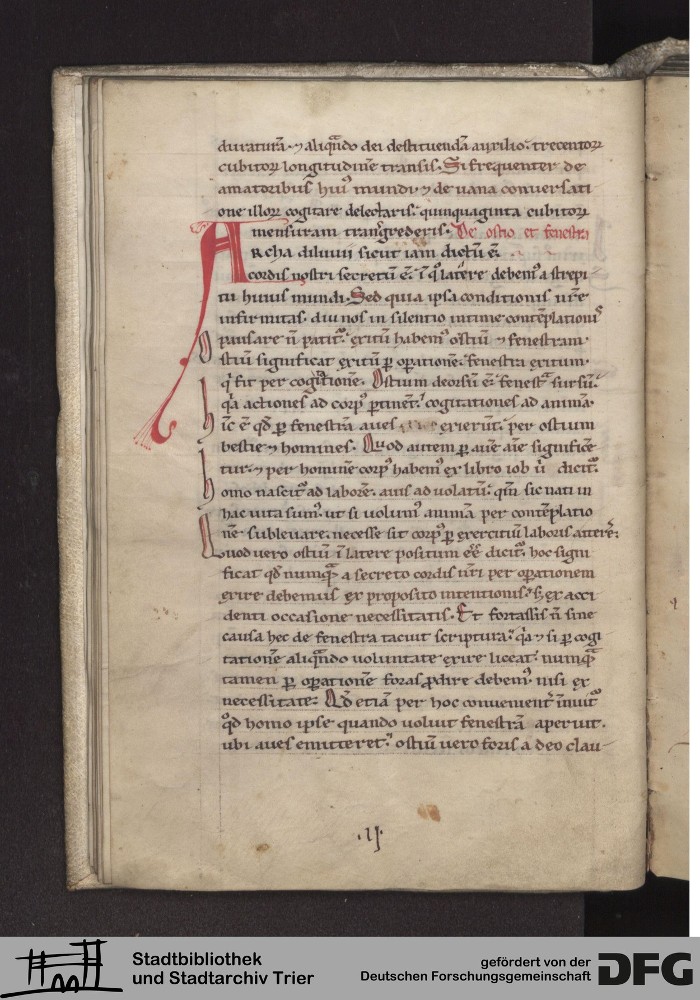 duraturā. ⁊ aliquādo dei destituendā auxilio. trecentoꝝ
cubitoꝝ longitudinē transis. Si frequenter de
amatoribus huiꝰ mundi ⁊ de uana conuersati
one illoꝝ cogitare delectaris. quinquaginta cubitoꝝ
mensuram transgrederis. De ostio et fenestra
Archa diluuii sicut iam dictū ē.
cordis nostri secretū ē. ī qͦ latere debemꝰ a strepi-
tu huius mundi. Sed quia ipsa conditionis nr̄e
infirmitas. diu nos in silentio intime contēplationis
pausare n̄ patitᷣ. exitū habemꝰ ostiū ⁊ fenestram.
Ostiū significat exitū ꝑ operationē. fenestra exitum.
qͥ fit per cogitationē. Ostium deorsū ē. fenestra sursū.
qͥa actiones ad corpꝰ ꝑtinent. cogitationes ad animā.
Hīc ē qd̄ ꝑ fenestrā aues exierūt. per ostium
bestię ⁊ homines. Quod autem ꝑ auē aīe significē
tur. ⁊ per hominē corpꝰ habemꝰ ex libro iob ū dicitᷣ.
Homo nascitᷣ ad laborē. auis ad volatū. qm̄ sic nati in
hac uita sumꝰ. ut si volumꝰ animā per contēplatio
nē subleuare. necesse sit corpꝰ ꝑ exercitiū laboris atterē.
Quod vero ostiū ī latere positum eē dicitᷣ. hoc signi
ficat qd̄ numqᷓ a secreto cordis nr̄i per operationem
exire debemus ex proposito intentionis. sꝫ ex acci
denti occasione necessitatis. Et fortassis n̄ sine
causa hec de fenestra tacuit scriptura. qͥa ⁊ si ꝑ cogi
tationē aliqᷓndo voluntate exire liceat. numqᷓ
tamen ꝑ operationē foras ꝓdire debemꝰ. nisi ex
necessitate. Qd̄ etiā per hoc conuenient̄ innuitᷣ
qͦd homo ipse quando voluit fenestrā aperuit.
ubi aues emitteret. ostiū uero foris a deo clau-
.II.
Stadtbibliothek
und Stadtarchiv Trier
gefördert von der
Deutschen Forschungsgemeinschaft
DFG